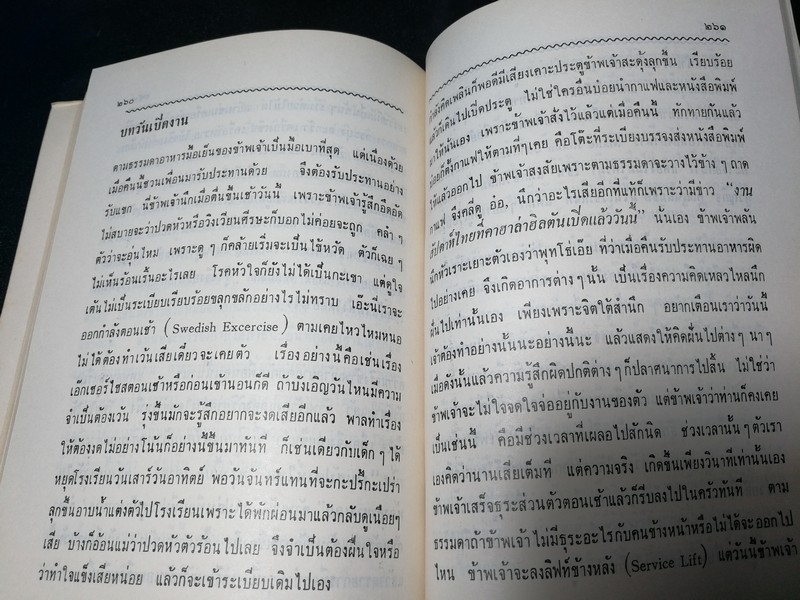 ๒๖๐
บทวันเปิดงาน
ตามธรรมดาอาหารมื้อเย็นของข้าพเจ้าเป็นมื้อเบาที่สุด แต่เนื่องด้วย
เมื่อคืนนี้ชวนเพื่อนมารับประทานด้วย จึงต้องรับประทานอย่าง
รับแขก นี่ข้าพเจ้านึกเมื่อตื่นขึ้นเช้าวันนี้ เพราะข้าพเจ้ารู้สึกอึดอัด
ไม่สบายจะว่าปวดหัวหรือวิงเวียนศีรษะก็บอกไม่ค่อยจะถูก คลำๆ
ตัวว่าจะอุ่นไหม เพราะดูๆ ก็คล้ายเริ่มจะเป็นไข้หวัด ตัวก็เฉยๆ
ไม่เห็นร้อนเร้นอะไรเลย โรคหัวใจก็ยังไม่ได้เป็นกะเขา แต่ดูใจ
เต้นไม่เป็นระเบียบเรียบร้อยขลุกขลักอย่างไรไม่ทราบ เอ๊ะนี่เราจะ
ออกกำลังตอนเช้า (Swedish Excercise) ตามเคยไหวไหมหนอ
ไม่ได้ต้องทำเว้นเสียเดี๋ยวจะเคยตัว เรื่องอย่างนี้คือเช่นเรื่อง
เอ๊กเซอร์ไซสตอนเช้าหรือก่อนเข้านอนก็ดี ถ้าบังเอิญวันไหนมีความ
จำเป็นต้องเว้น รุ่งขึ้นมักจะรู้สึกอยากจะงดเสียอีกแล้ว พาลทำเรื่อง
ให้ต้องงดไม่อย่างโน้นก็อย่างนี้ขึ้นมาทันที ก็เช่นเดียวกับเด็กๆ ได้
หยุดโรงเรียนวันเสาร์วันอาทิตย์ พอวันจันทร์แทนที่จะกะปรี้กะเปร่า
ลุกขึ้นอาบน้ำแต่งตัวไปโรงเรียนเพราะได้พักผ่อนมาแล้วกลับดูเนือยๆ
เสีย บ้างก็อ้อนแม่ว่าปวดหัวตัวร้อนไปเลย จึงจำเป็นต้องฝืนใจหรือ
ว่าทำใจแข็งเสียหน่อย แล้วก็จะเข้าระเบียบเดิมไปเอง
๒๖๑
กำลังคิดเพลินก็พอดีมีเสียงเคาะประตูข้าพเจ้าสะดุ้งลุกขึ้น เรียบร้อย
แล้วก็เดินไปเปิดประตู ไม่ใช่ใครอื่นบ๋อยนำกาแฟและหนังสือพิมพ์
มาให้นั่นเอง เพราะข้าพเจ้าสั่งไว้แล้วแต่เมื่อคืนนี้ ทักทายกันแล้ว
บ๋อยก็ตั้งกาแฟให้ตามที่ๆเคย คือโต๊ะที่ระเบียงบรรจงส่งหนังสือพิมพ์
ให้แล้วออกไป ข้าพเจ้าสงสัยเพราะตามธรรมดาจะวางไว้ข้างๆ ถาด
กาแฟ จึงคลี่ดู อ๋อ, นึกว่าอะไรเสียอีกที่แท้ก็เพราะว่ามีข่าว "งาน
สัปดาห์ไทยที่คาฮาล่าฮิลตันเปิดแล้ววันนี้" นั่นเอง ข้าพเจ้าพลัน
นึกหัวเราะเยาะตัวเองว่าพุทโธ่เอ๊ย ที่ว่าเมื่อคืนรับประทานอาหารผิด
ไปอย่างเคย จึงเกิดอาการต่างๆนั้น เป็นเรื่องความคิดเหลวไหลนึก
ฝันไปเท่านั้นเอง เพียงเพราะจิตใต้สำนึก อยากเตือนเราว่าวันนี้
เจ้าต้องทำอย่างนั้นนะอย่างนี้นะ แล้วแสดงให้คิดฝันไปต่างๆ นาๆ
เมื่อดังนั้นแล้วความรู้สึกผิดปกติต่างๆก็ปลาศนาการไปสิ้น ไม่ใช่ว่า
ข้าพเจ้าจะไม่ใจจดใจจ่ออยู่กับงานของตัว แต่ข้าพเจ้าว่าท่านก็คงเคย
เป็นเช่นนี้ คือมีช่วงเวลาที่เผลอไปสักนิด ช่วงเวลานั้นๆตัวเรา
เองคิดว่านานเสียเต็มที แต่ความจริง เกิดขึ้นเพียงวินาทีเท่านั้นเอง
ข้าพเจ้าเสร็จธุระส่วนตัวตอนเช้าแล้วก็รีบลงไปในครัวทันที ตาม
ธรรมดาถ้าข้าพเจ้าไม่มีธุระอะไรกับคนข้างหน้าหรือไม่ได้จะออกไป
ไหน ข้าพเจ้าจะลงลิฟท์ข้างหลัง (Service Lift) แต่วันนี้ข้าพเจ้า